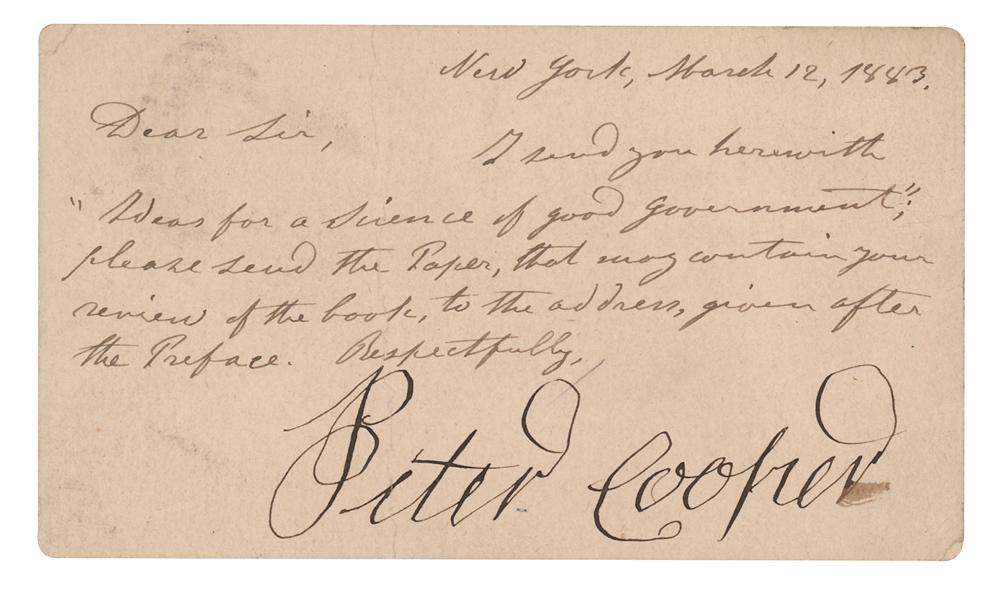 New York, March 12, 1883.
Dear Sir,
I send you herewith
"Ideas for a Science of good Government";
please send the Paper, that may contain your
review of the book, to the address, given after
the Preface. Respectfully,
Peter Cooper